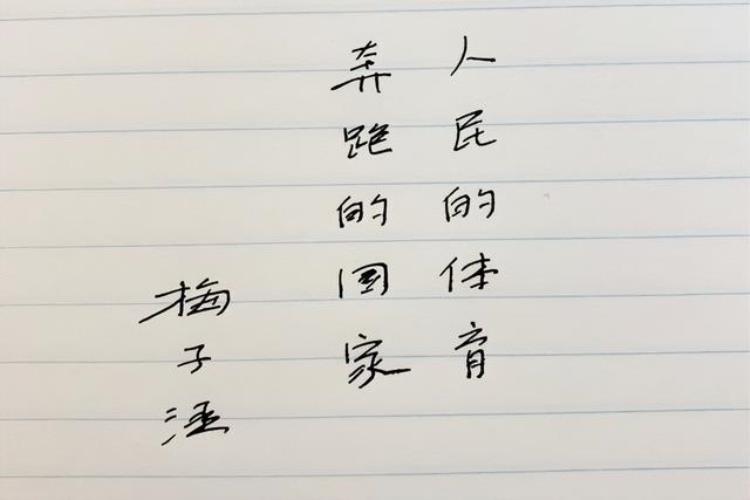 人民的体育
奔跑的国家
梅子涵